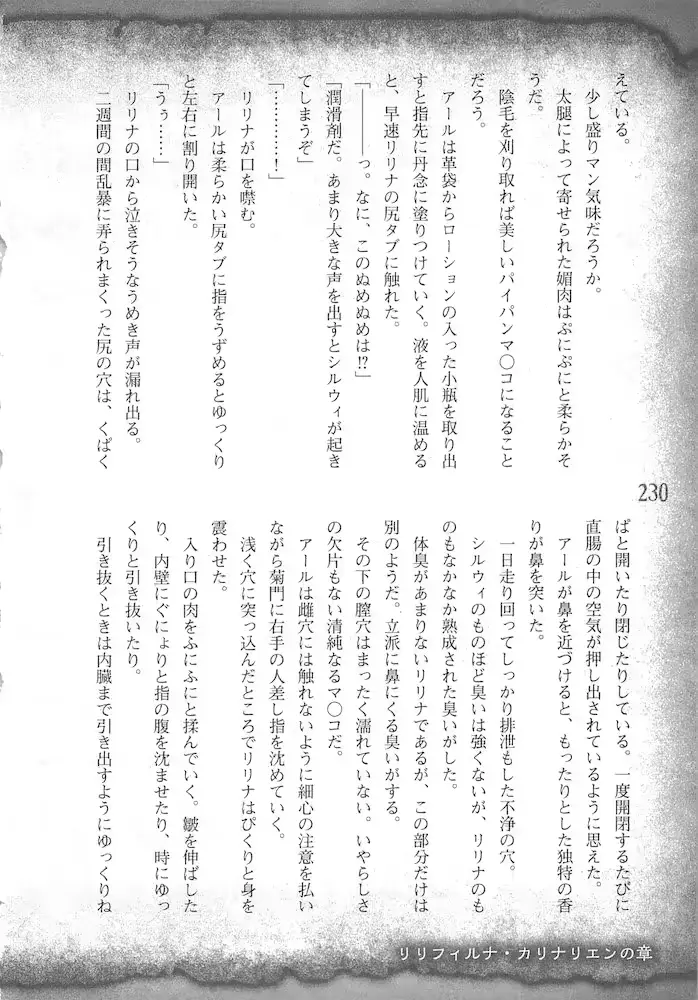 えている。
少し盛りマン気味だろうか。
太腿によって寄せられた媚肉はぷにぷにと柔らかそ
うだ。
陰毛を刈り取れば美しいパイパンマ〇コになること
だろう。
アールは革袋からローションの入った小瓶を取り出
すと指先に丹念に塗りつけていく。液を人肌に温める
と、早速リリナの尻タブに触れた。
「――っ。なに、このぬめぬめは!?」
「潤滑剤だ。あまり大きな声を出すとシルウィが起き
てしまうぞ」
「…………！」
リリナが口を噤む。
アールは柔らかい尻タブに指をうずめるとゆっくり
と左右に割り開いた。
「うぅ……」
リリナの口から泣きそうなうめき声が漏れ出る。
二週間の間乱暴に弄られまくった尻の穴は、くぱく
230
ぱと開いたり閉じたりしている。一度開閉するたびに
直腸の中の空気が押し出されているように思えた。
アールが鼻を近づけると、もったりとした独特の香
りが鼻を突いた。
一日走り回ってしっかり排泄もした不浄の穴。
シルウィのものほど臭いは強くないが、リリナのも
のもなかなか熟成された臭いがした。
体臭があまりないリリナであるが、この部分だけは
別のようだ。立派に鼻にくる臭いがする。
その下の膣穴はまったく濡れていない。いやらしさ
の欠片もない清純なるマ〇コだ。
アールは雌穴には触れないように細心の注意を払い
ながら菊門に右手の人差し指を沈めていく。
浅く穴に突っ込んだところでリリナはぴくりと身を
震わせた。
入り口の肉をふにふにと揉んでいく。皺を伸ばした
り、内壁にぐにょりと指の腹を沈ませたり、時にゆっ
くりと引き抜いたり。
引き抜くときは内臓まで引き出すようにゆっくりね
リリフィルナ・カリナリエンの章